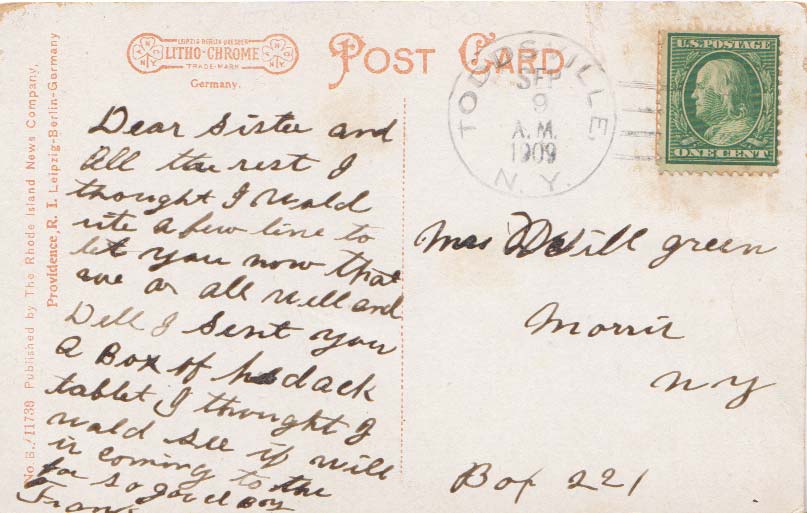 LEIPZIG-BERLIN-DRESDEN
LITHO-CHROME
TRADE-MARK
Germany.
POST CARD
TODDSVILLE,
SEP
9
A.M.
1909
N. Y.
U.S. POSTAGE
ONE CENT
No. B./11738 Published by The Rhode Island News Company,
Providence, R. I. Leipzig-Berlin-Germany
Dear Sister and
All the rest I
thought I wald
rite a few line to
let you now that
we ar all well and
Dell I sent you
a Box of hedack
tablet I thought I
wald see if will
is coming to the
far so good boy
Mrs Will green
Morris
N y
Box 221